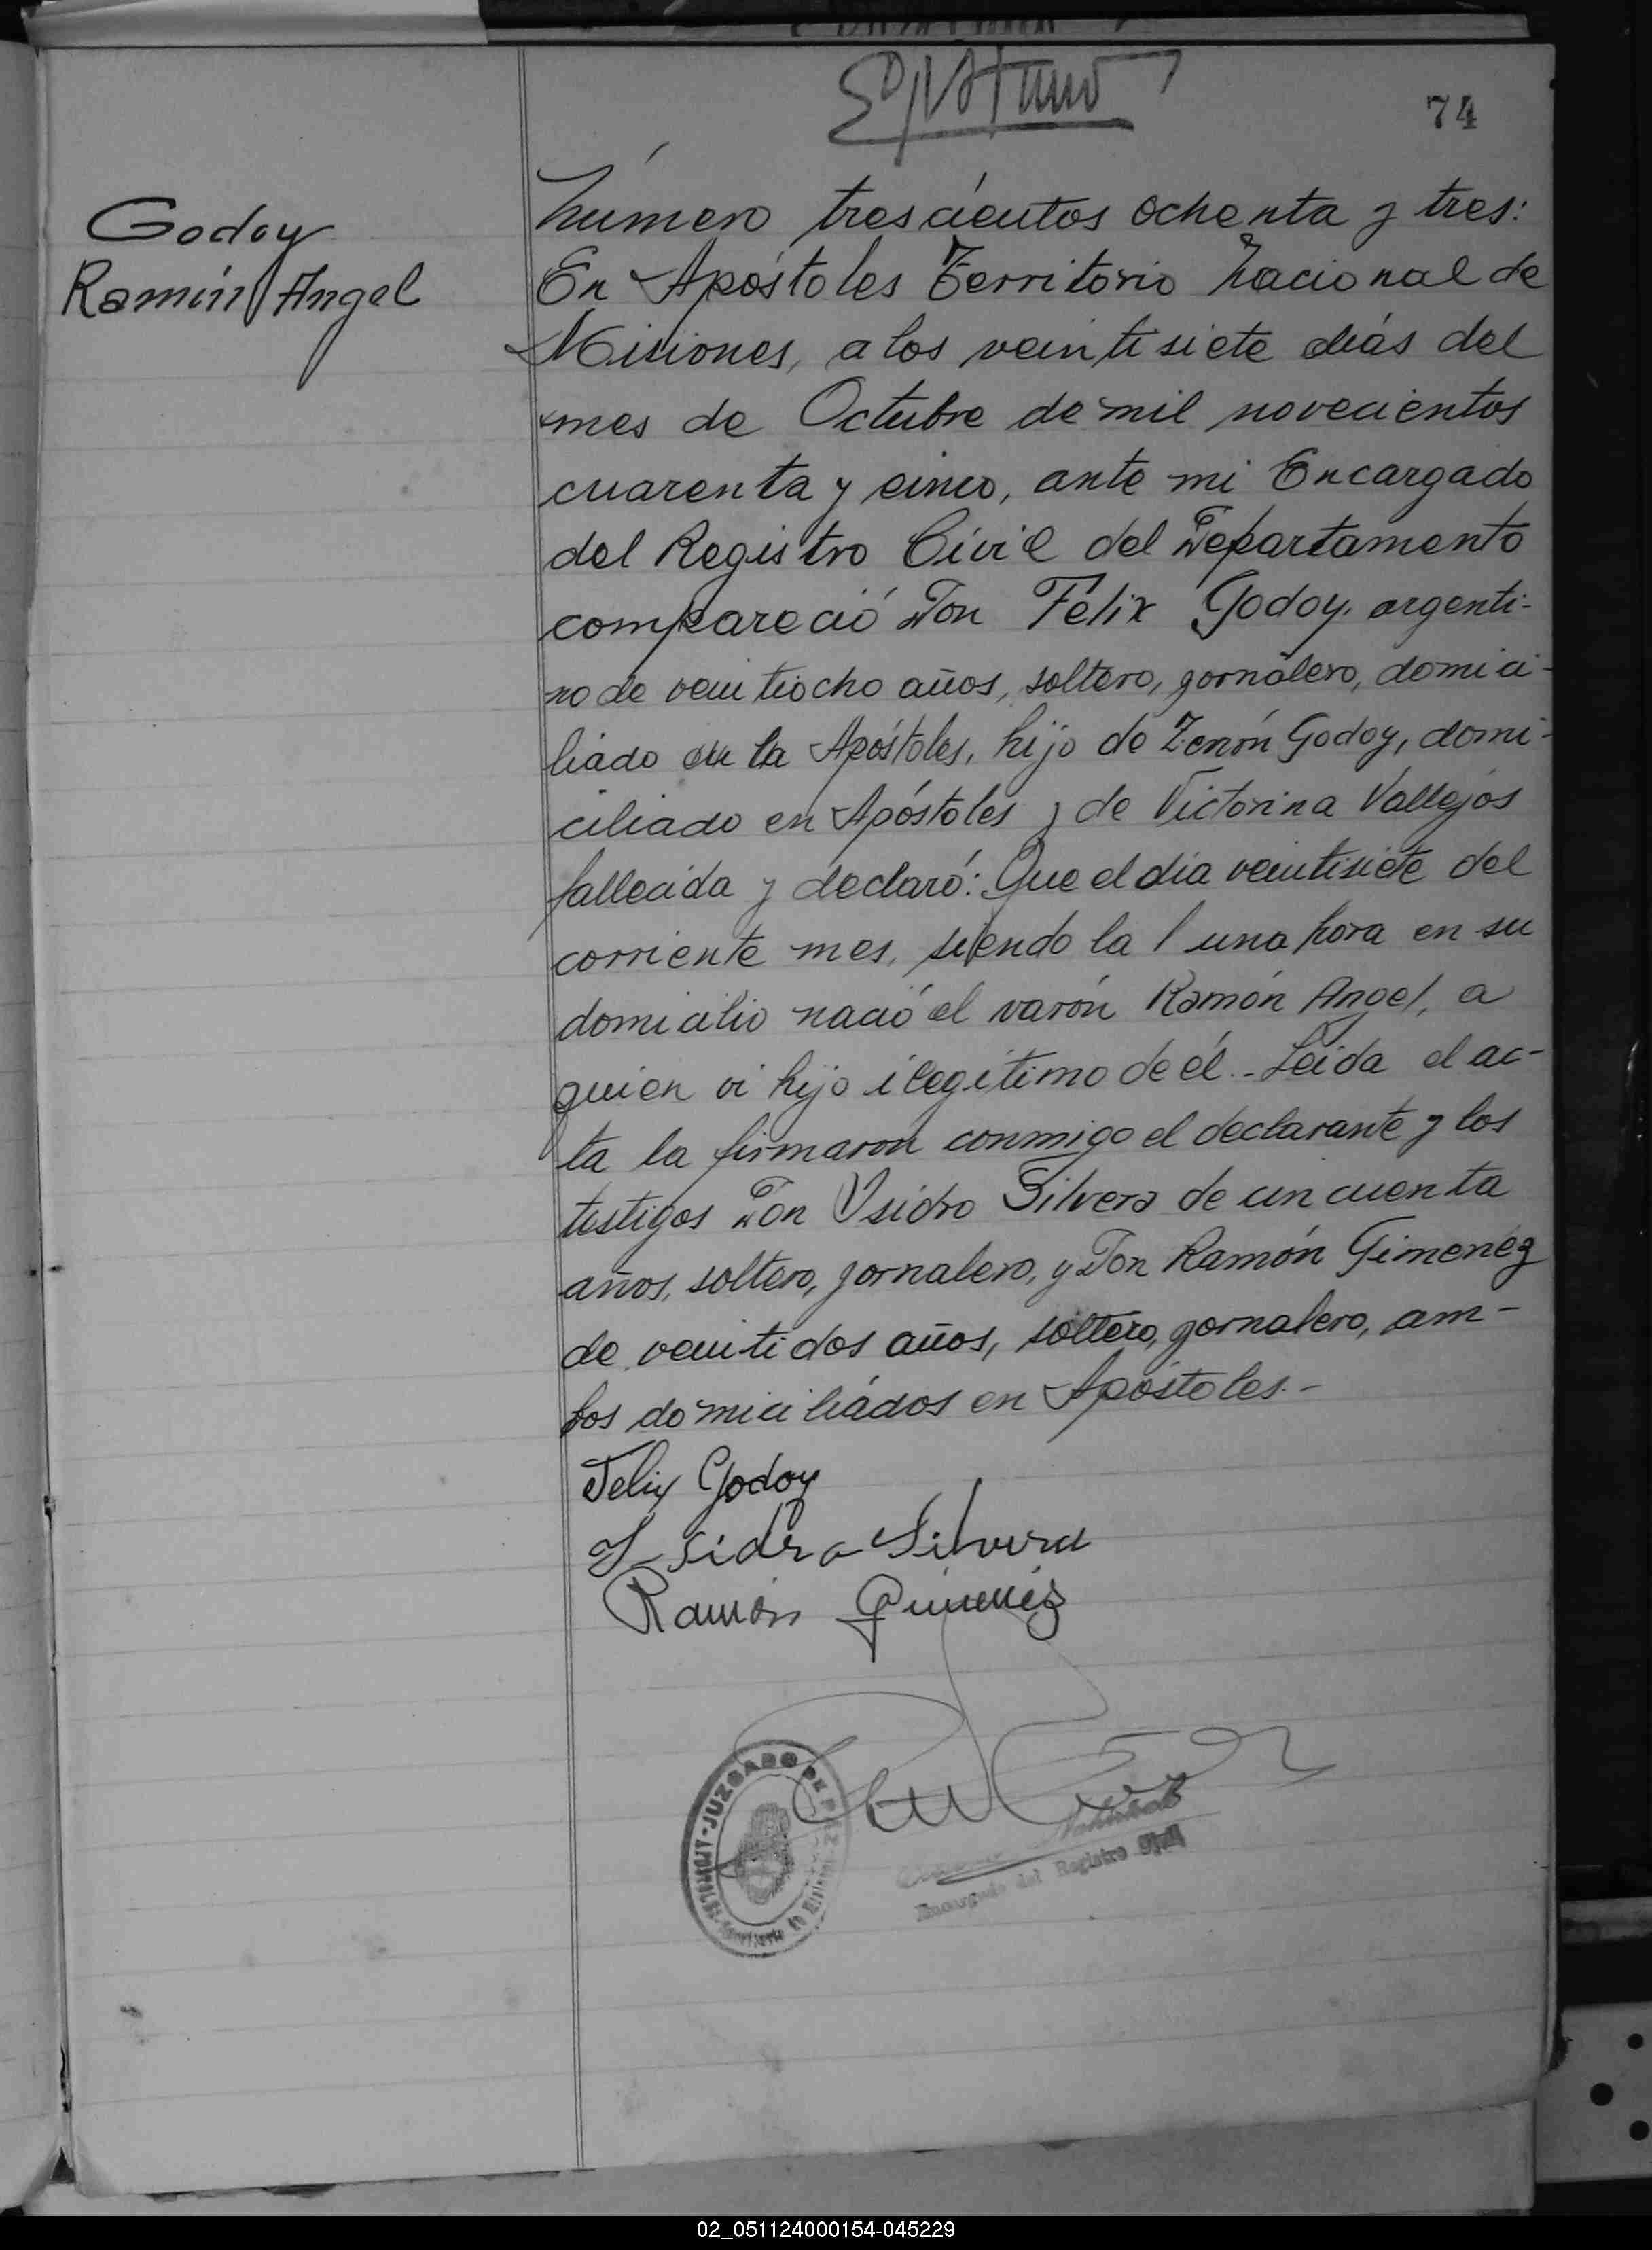 74
Godoy
Ramón Angel
Número trescientos ochenta y tres:
En Apóstoles Territorio Nacional de
Misiones, a los veintisiete días del
mes de Octubre de mil novecientos
cuarenta y cinco, ante mi Encargado
del Registro Civil del Departamento
compareció Don Felix Godoy, argenti-
no de veintiocho años, soltero, jornalero, domici-
liado en la Apóstoles, hijo de Zenón Godoy, domi-
ciliado en Apóstoles y de Victorina Vallejos
fallecida y declaró: Que el día veintisiete del
corriente mes, siendo la una hora en su
domicilio nació el varón Ramón Angel, a
quien vi hijo ilegítimo de él.- Leida el ac-
ta la firmaron conmigo el declarante y los
testigos Don Ysidro Silvera de cincuenta
años, soltero, jornalero, y Don Ramón Gimenez
de veintidos años, soltero, jornalero, am-
bos domiciliados en Apóstoles.-
Felix Godoy
Isidro Silvera
Ramón Gimenéz
JUZGADO DE PAZ
APOSTOLES
Encargado del Registro Civil
02_051124000154-045229